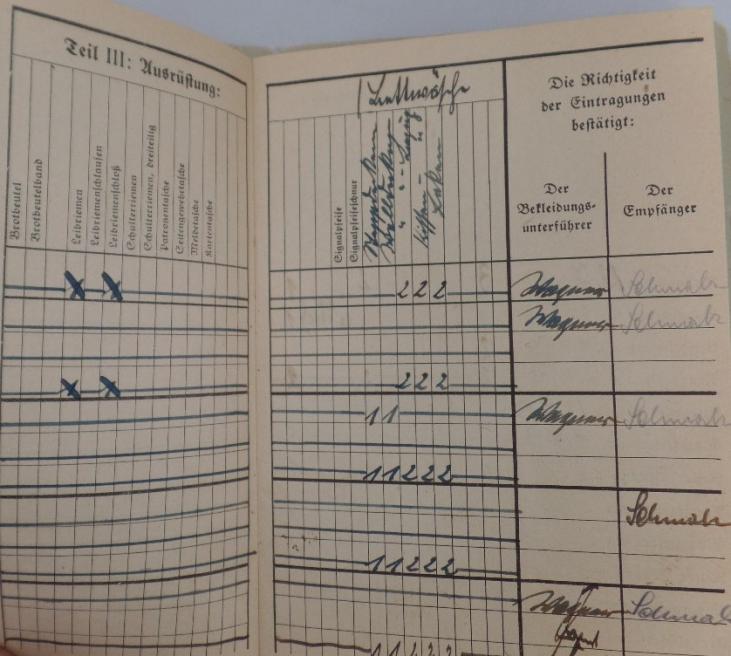 Teil III: Ausrüstung:
Brotbeutel
Brotbeutelband
Leibriemen
Leibriemenschlaufen
Leibriemenschloß
Schulterriemen
Schulterriemen, dreiteilig
Patronentasche
Seitengewehrtasche
Meldetasche
Kartentasche
Bettwäsche
Signalpfeife
Signalpfeifschnur
Kissen
Laken
Die Richtigkeit
der Eintragungen
bestätigt:
Der
Bekleidungs-
unterführer
Der
Empfänger
x x 2 2 2 Wagner Schmalz
Wagner Schmalz
x x 2 2 2
1 1 Wagner Schmalz
1 1 2 2 2
Schmalz
1 1 2 2 2
Wagner Schmalz